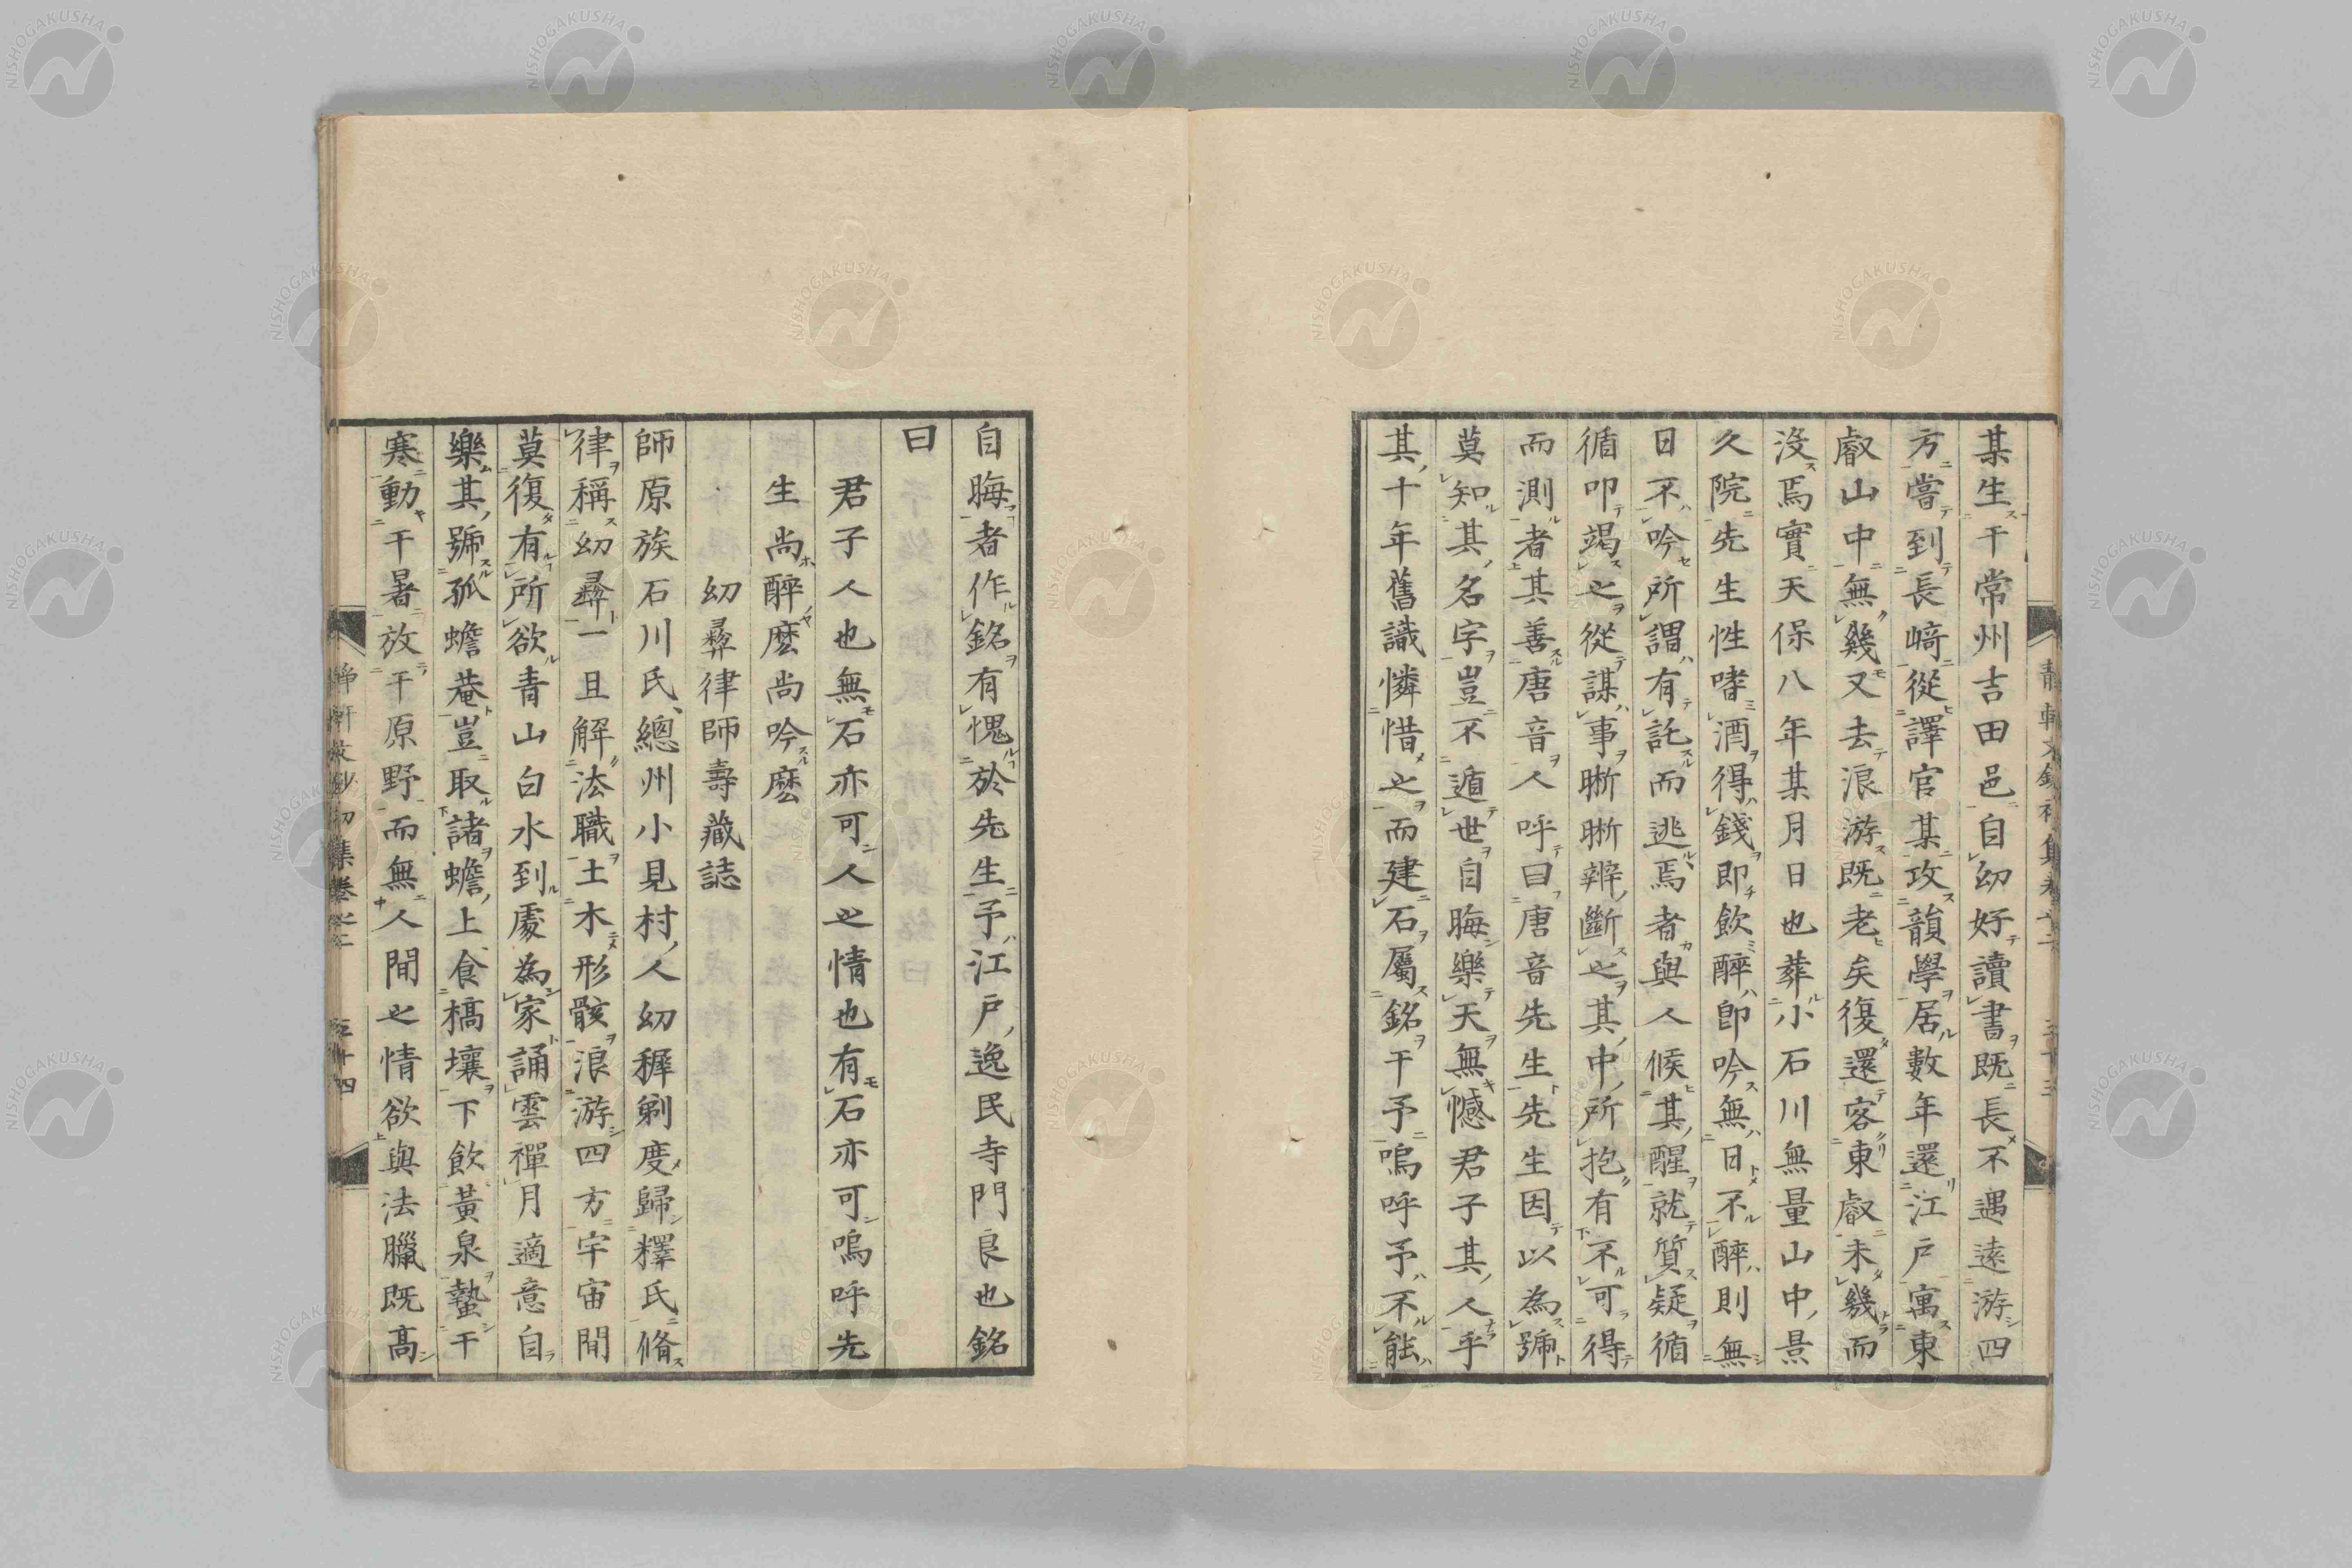 某生于常州吉田邑自幼好讀書既長不遇遠游四
方嘗到長﨑從譯官某攻韻學居數年還江戶寓東
叡山中無幾又去浪游既老矣復還客東叡未幾而
沒焉實天保八年某月日也葬小石川無量山中景
久院先生性嗜酒得錢即飲醉即吟無日不醉則無
日不吟所謂有託而逃焉者與人候其醒就質疑循
循叩竭之從謀事晰晰辨斷之其中所抱有不可得
而測者其善唐音人呼曰唐音先生先生因以為號
莫知其名字豈不遁世自晦樂天無憾君子其人乎
其十年舊識憐惜之而建石屬銘于予嗚呼予不能
自晦者作銘有愧於先生予江戶逸民寺門良也銘
曰
君子人也無石亦可人之情也有石亦可嗚呼先
生尚醉麽尚吟麽
幻彛律師壽藏誌
師原族石川氏總州小見村人幼穉剃度歸釋氏脩
律稱幻彛一旦解法職土木形骸浪游四方宇宙間
莫復有所欲青山白水到處為家誦雲禪月適意自
樂其號孤蟾菴豈取諸蟾上食槁壤下飲黃泉蟄于
寒動于暑放于原野而無人間之情欲與法臘既高
五十四
NISHOGAKUSHA